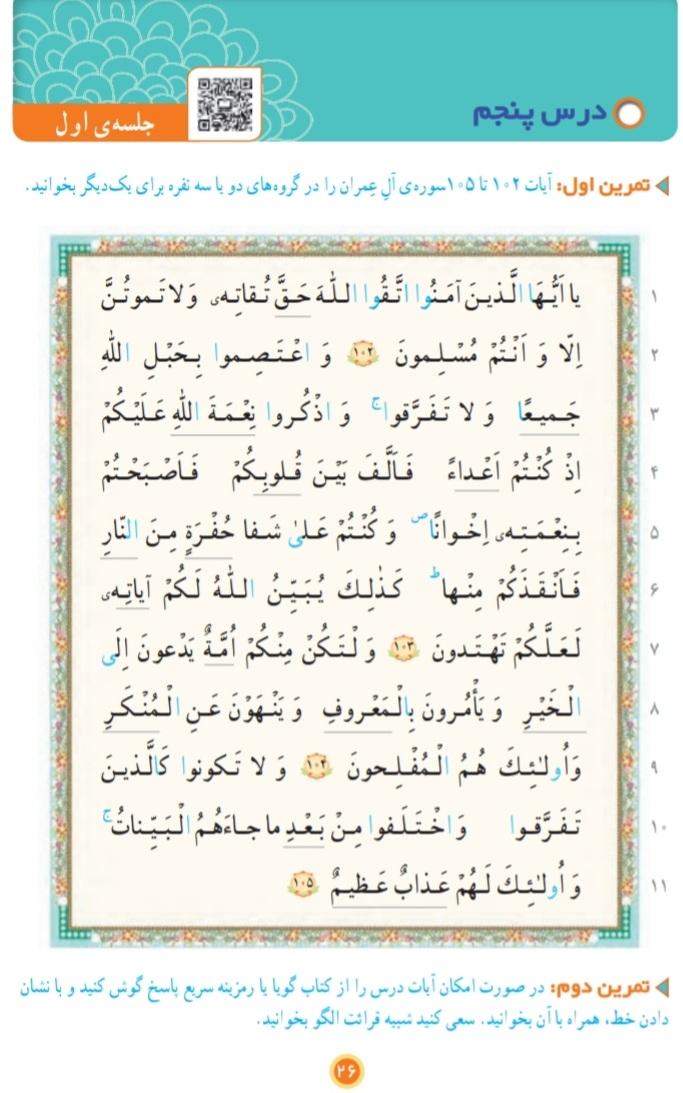 درس پنجم
جلسه‌ی اول
تمرین اول: آیات ۱۰۲ تا ۱۰۵سوره‌ی آلِ عِمران را در گروه‌های دو یا سه نفره برای یک‌دیگر بخوانید.
۱ یا اَیُّهَا الَّذینَ آمَنُوا اتَّقُوا اللّٰهَ حَقَّ تُقاتِهٖ وَ لا تَموتُنَّ
۲ اِلّا وَ اَنْتُمْ مُسْلِمونَ ﴿۱۰۲﴾ وَ اعْتَصِموا بِحَبْلِ اللّٰهِ
۳ جَمیعًا وَ لا تَفَرَّقوا ۚ وَ اذْکُروا نِعْمَةَ اللّٰهِ عَلَیْکُمْ
۴ اِذْ کُنْتُمْ اَعْداءً فَاَلَّفَ بَیْنَ قُلوبِکُمْ فَاَصْبَحْتُمْ
۵ بِنِعْمَتِهٖ اِخْوانًا ۖ وَ کُنْتُمْ عَلیٰ شَفا حُفْرَةٍ مِنَ النّارِ
۶ فَاَنْقَذَکُمْ مِنْها ؕ کَذٰلِکَ یُبَیِّنُ اللّٰهُ لَکُمْ آیاتِهٖ
۷ لَعَلَّکُمْ تَهْتَدونَ ﴿۱۰۳﴾ وَ لْتَکُنْ مِنْکُمْ اُمَّةٌ یَدْعونَ اِلَی
۸ الْخَیْرِ وَ یَأْمُرونَ بِالْمَعْروفِ وَ یَنْهَوْنَ عَنِ الْمُنْکَرِ
۹ وَ اُولٰئِکَ هُمُ الْمُفْلِحونَ ﴿۱۰۴﴾ وَ لا تَکونوا کَالَّذینَ
۱۰ تَفَرَّقوا وَ اخْتَلَفوا مِنْ بَعْدِ ما جاءَهُمُ الْبَیِّناتُ ۚ
۱۱ وَ اُولٰئِکَ لَهُمْ عَذابٌ عَظیمٌ ﴿۱۰۵﴾
تمرین دوم: در صورت امکان آیات درس را از کتاب گویا یا رمزینه سریع پاسخ گوش کنید و با نشان
دادن خط، همراه با آن بخوانید. سعی کنید شبیه قرائت الگو بخوانید.
۲۶